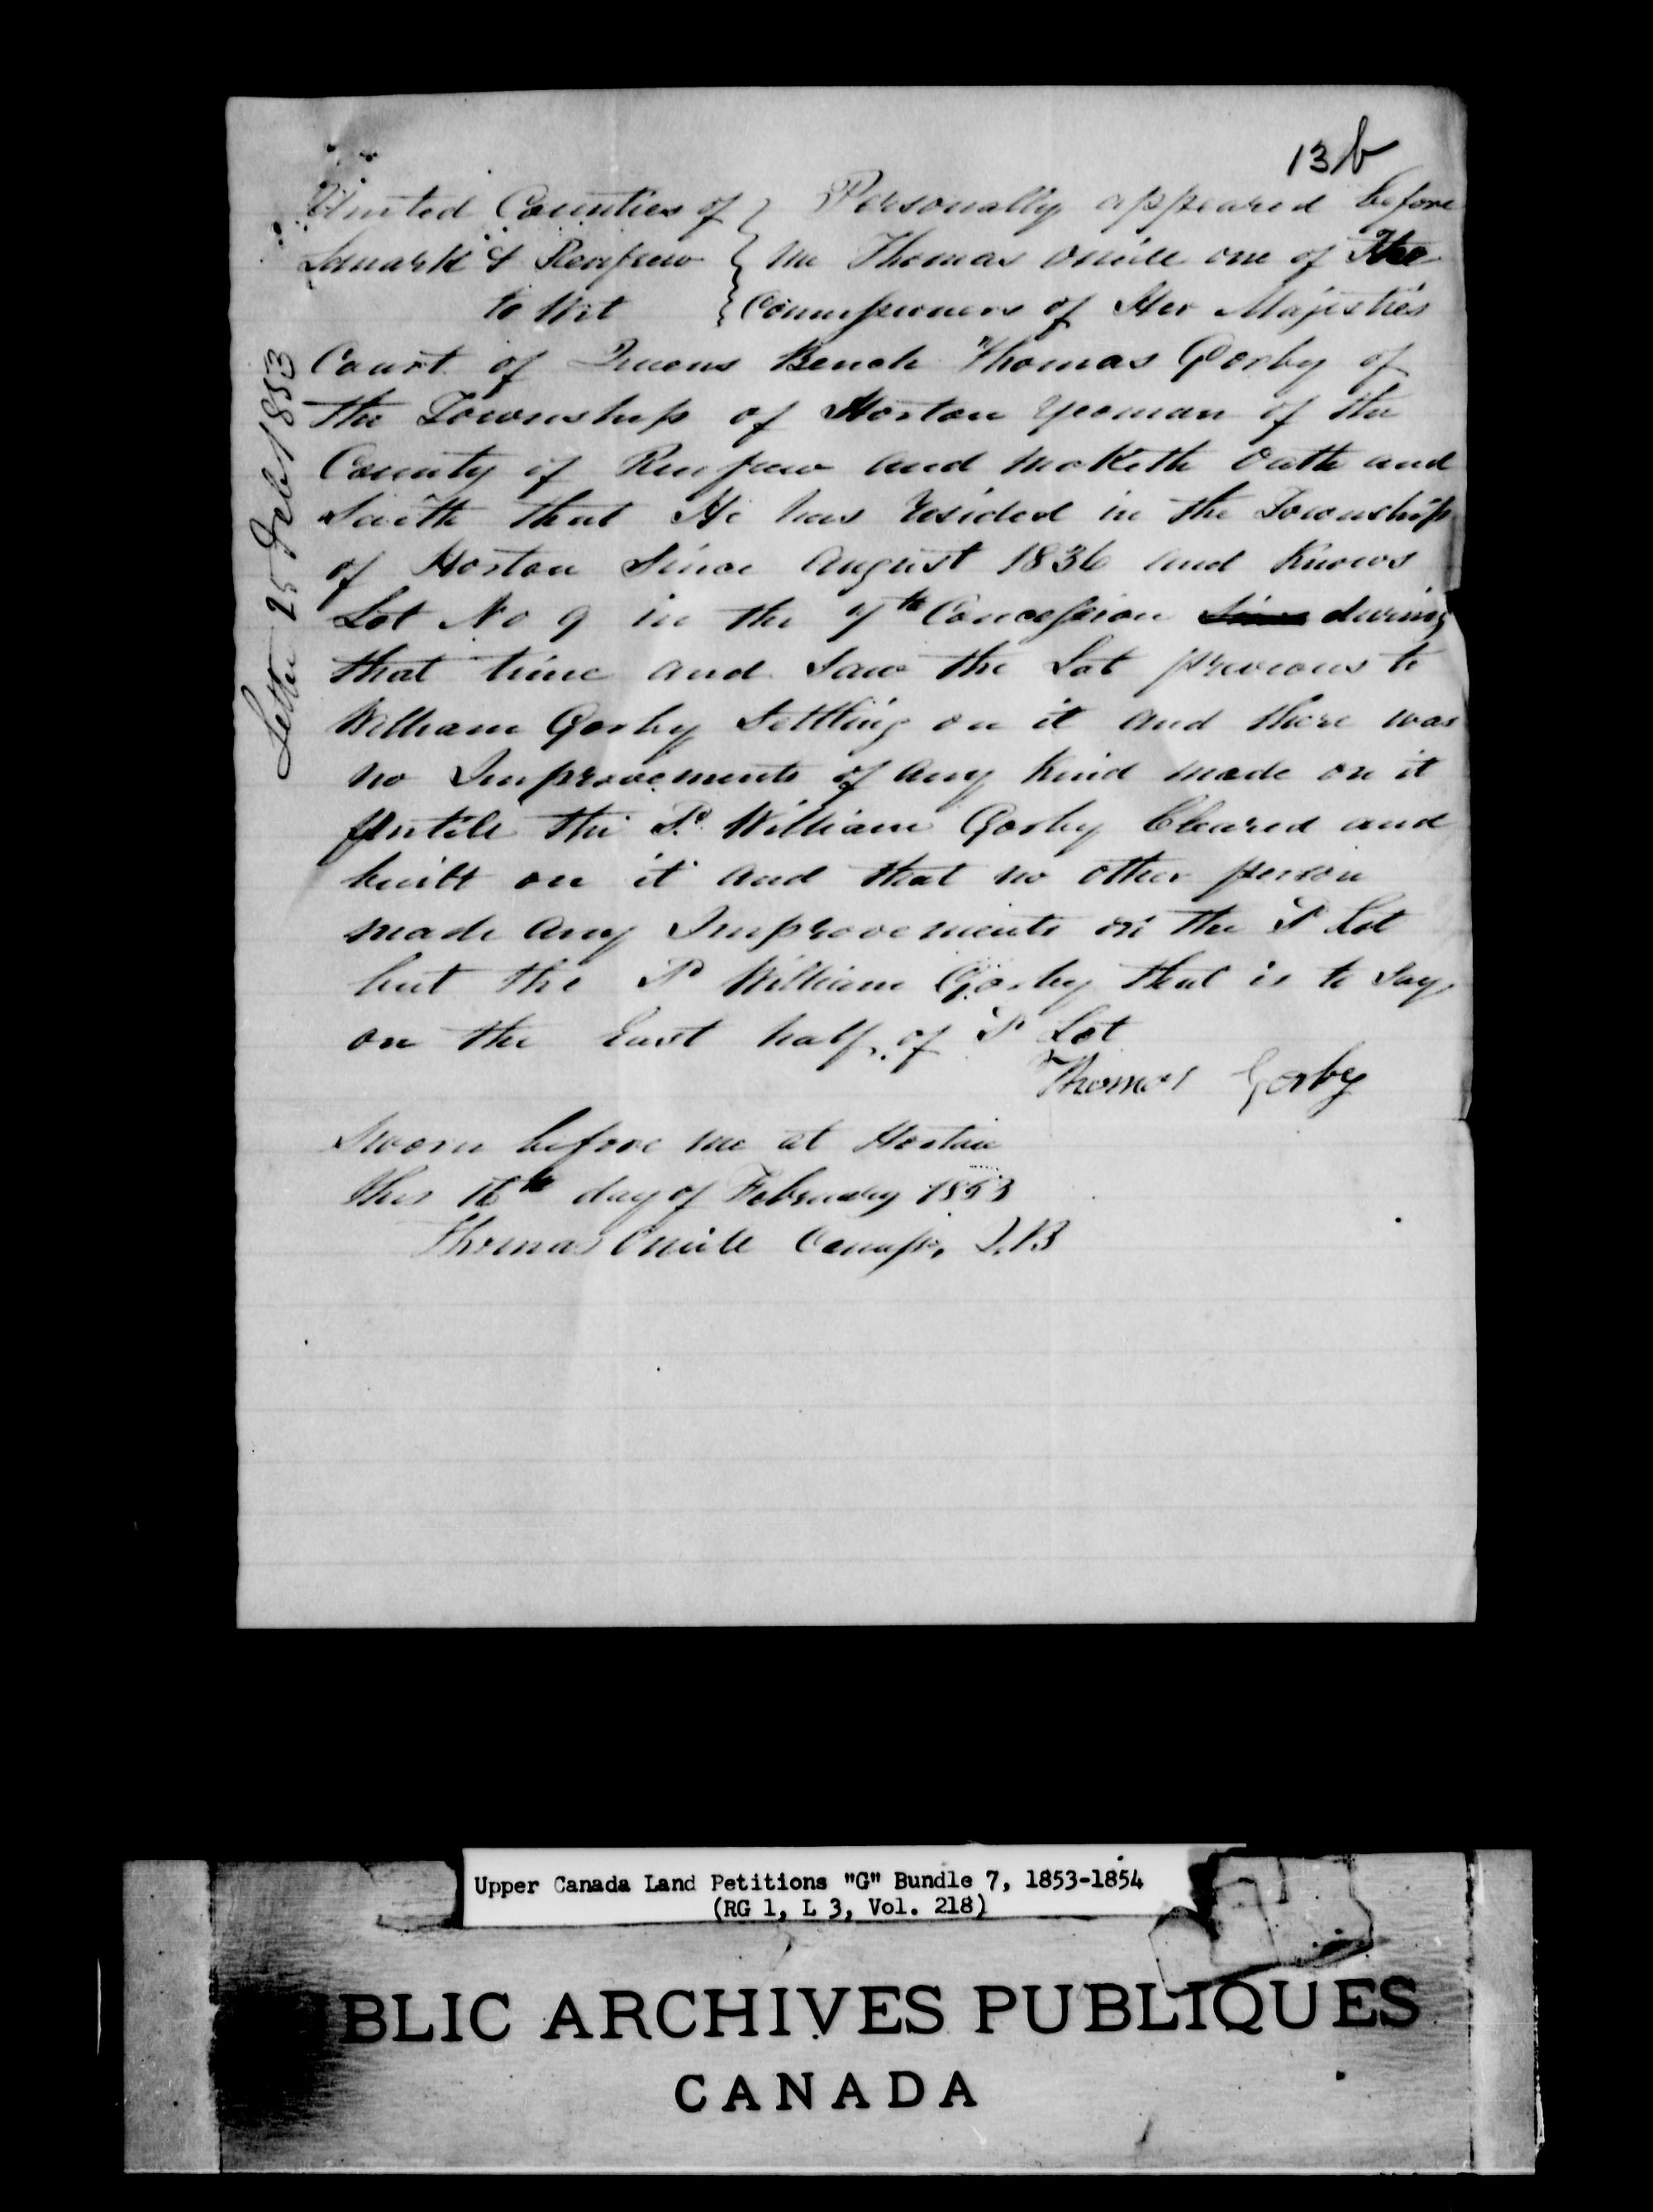 13b
United Counties of } Personally appeared before
Lanark & Renfrew } me Thomas Oneile one of The
to Wit } Commissioners of Her Majesties
Court of Queens Bench Thomas Gorby of
the Township of Horton Yeoman of the
County of Renfrew and maketh Oath and
Saith that He has resided in the Township
of Horton Since August 1836 and Knows
Lot No 9 in the 7th Concession during
that time and saw the Lot previous to
William Gorby Settling on it and there was
no Improvements of any kind made on it
untile the Sd William Gorby Cleared and
built on it and that no other person
made any Improvements on the Sd Lot
but the Sd William Gorby that is to say
on the East half of Sd Lot
Thomas Gorby
Sworn before me at Horton
this 16th day of February 1853
Thomas Oneile Commissr. Q.B
Letter 25 Feby 1853
Upper Canada Land Petitions "G" Bundle 7, 1853-1854
(RG 1, L 3, Vol. 218)
BLIC ARCHIVES PUBLIQUES
CANADA